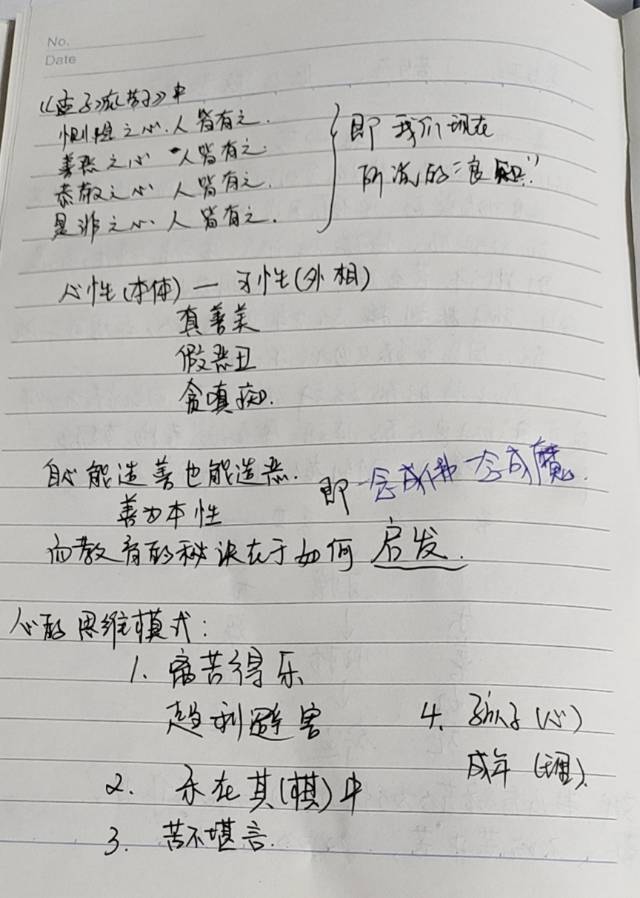 No.
Date
《孟子·告子》中
恻隐之心.人皆有之.
羞恶之心 人皆有之.
恭敬之心 人皆有之.
是非之心.人皆有之.
即我们现在
所说的"良知"
心性(本体) — 习性(外相)
真善美
假恶丑
贪嗔痴.
自心能造善也能造恶.
即一念成佛 一念成魔.
善为本性
而教育的秘诀在于如何 启发.
心的思维模式:
1. 离苦得乐
趋利避害
2. 乐在其(棋)中
3. 苦不堪言.
4. 孩子(心)
成年(理).